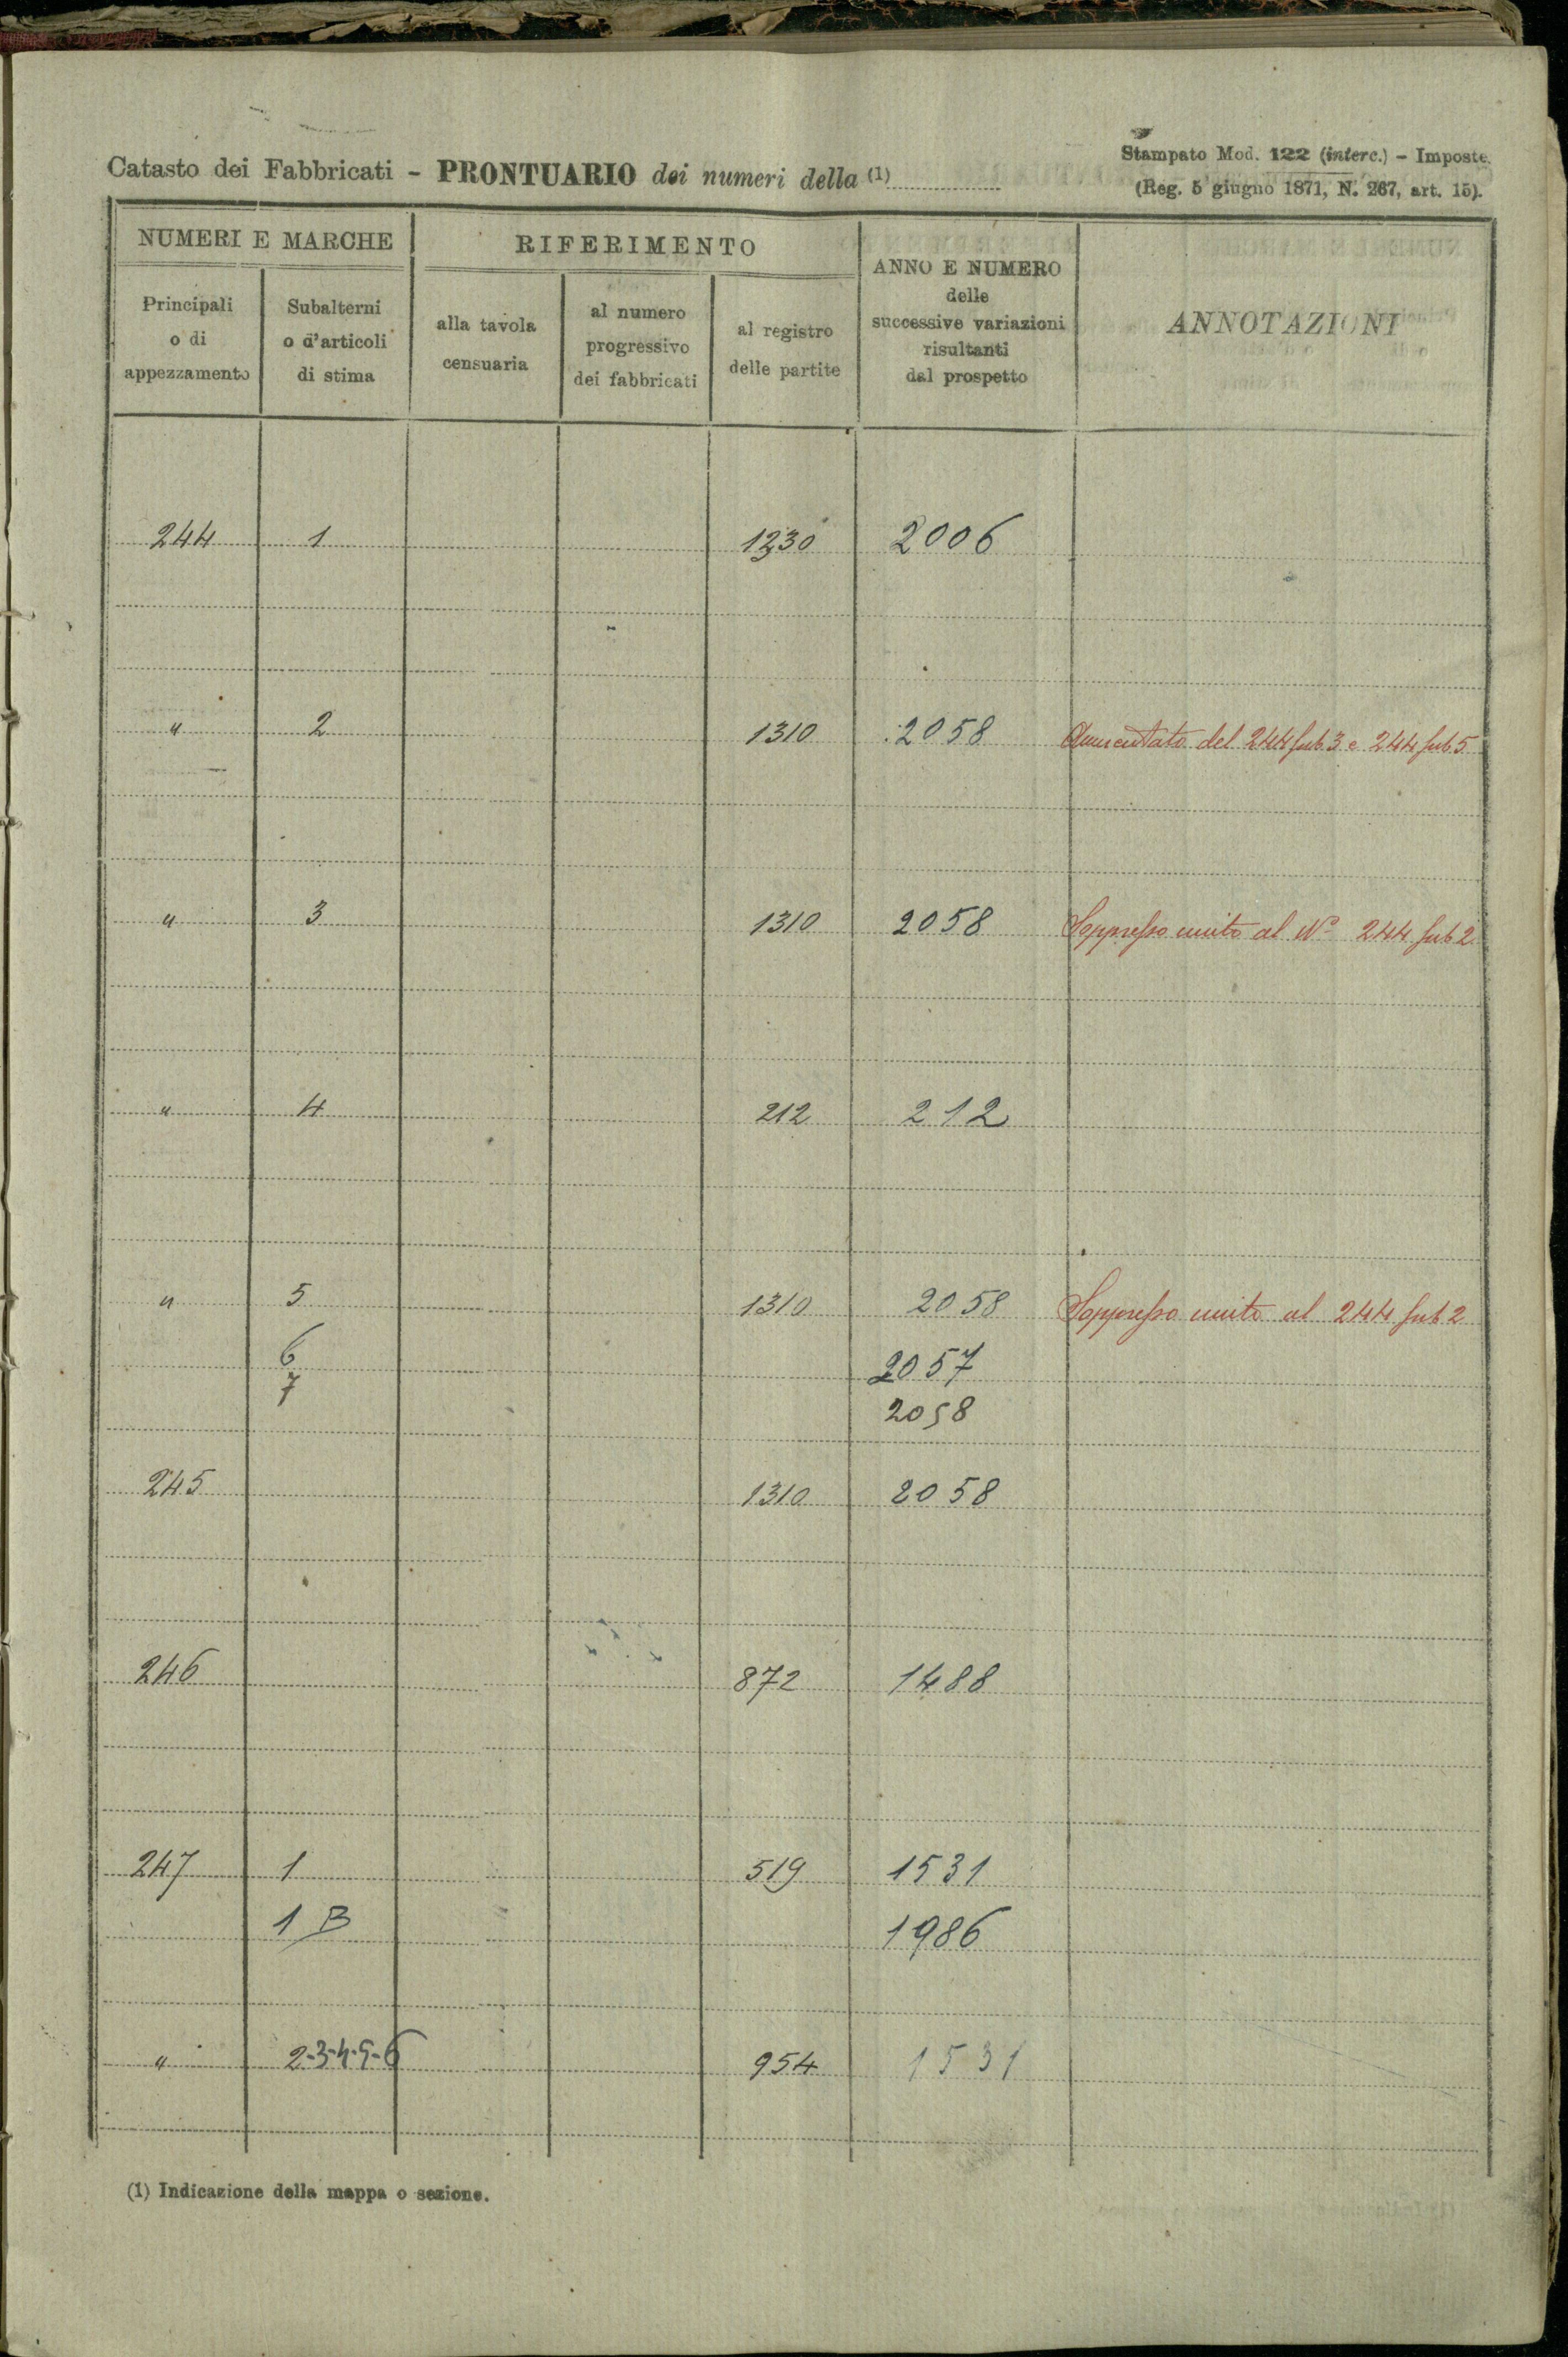 Catasto dei Fabbricati - PRONTUARIO dei numeri della (1)
Stampato Mod. 122 (interc.) - Imposte.
(Reg. 5 giugno 1871, N. 267, art. 15).
NUMERI E MARCHE
RIFERIMENTO
ANNO E NUMERO
delle
successive variazioni
risultanti
dal prospetto
ANNOTAZIONI
Principali
o di
appezzamento
Subalterni
o d'articoli
di stima
alla tavola
censuaria
al numero
progressivo
dei fabbricati
al registro
delle partite
244 1 1230 2006
" 2 1310 2058 Aumentato del 244 sub 3 e 244 sub 5
" 3 1310 2058 Soppresso unito al N° 244 sub 2
" 4 212 212
" 5 1310 2058 Soppresso unito al 244 sub 2
6 2057
7 2058
245 1310 2058
246 872 1488
247 1 519 1531
1 B 1986
" 2-3-4-5-6 954 1531
(1) Indicazione della mappa o sezione.